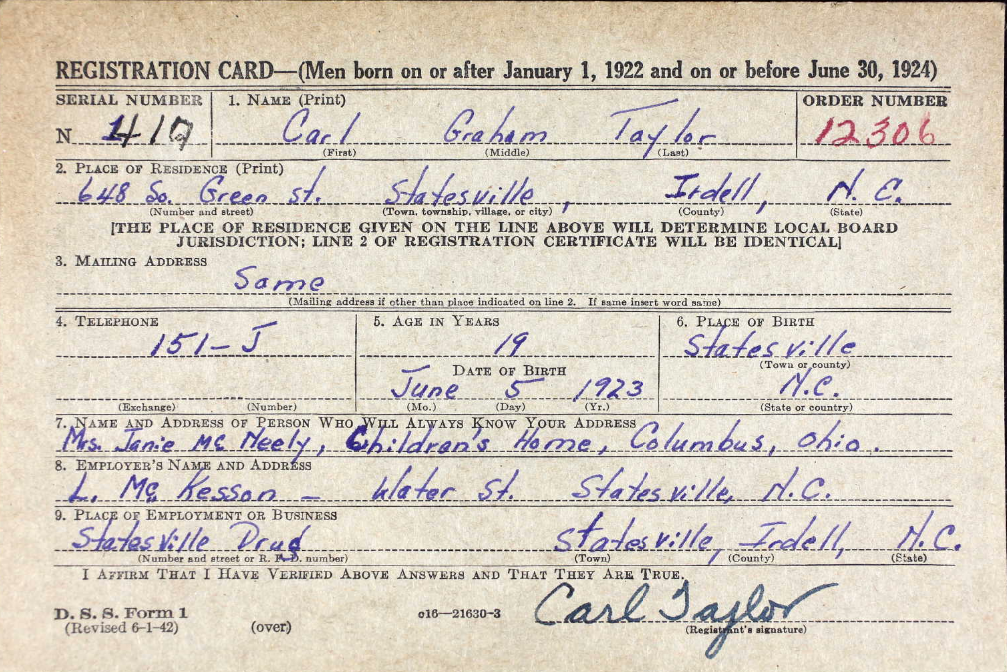 REGISTRATION CARD—(Men born on or after January 1, 1922 and on or before June 30, 1924)
SERIAL NUMBER 1. NAME (Print) ORDER NUMBER
N 410 Carl Graham Taylor 12306
(First) (Middle) (Last)
2. PLACE OF RESIDENCE (Print)
648 So. Green St. Statesville, Irdell, N.C.
(Number and street) (Town, township, village, or city) (County) (State)
[THE PLACE OF RESIDENCE GIVEN ON THE LINE ABOVE WILL DETERMINE LOCAL BOARD
JURISDICTION; LINE 2 OF REGISTRATION CERTIFICATE WILL BE IDENTICAL]
3. MAILING ADDRESS
Same
(Mailing address if other than place indicated on line 2. If same insert word same)
4. TELEPHONE 5. AGE IN YEARS 6. PLACE OF BIRTH
151-J 19 Statesville
(Town or county)
DATE OF BIRTH
June 5 1923 N.C.
(Exchange) (Number) (Mo.) (Day) (Yr.) (State or country)
7. NAME AND ADDRESS OF PERSON WHO WILL ALWAYS KNOW YOUR ADDRESS
Mrs. Janie Mc Neely, Children's Home, Columbus, Ohio.
8. EMPLOYER'S NAME AND ADDRESS
L. Mc Kesson - Water St. Statesville, N.C.
9. PLACE OF EMPLOYMENT OR BUSINESS
Statesville Drug Statesville, Irdell, N.C.
(Number and street or R. F. D. number) (Town) (County) (State)
I AFFIRM THAT I HAVE VERIFIED ABOVE ANSWERS AND THAT THEY ARE TRUE.
D. S. S. Form 1
(Revised 6-1-42) (over) c16—21630-3 Carl Taylor
(Registrant's signature)